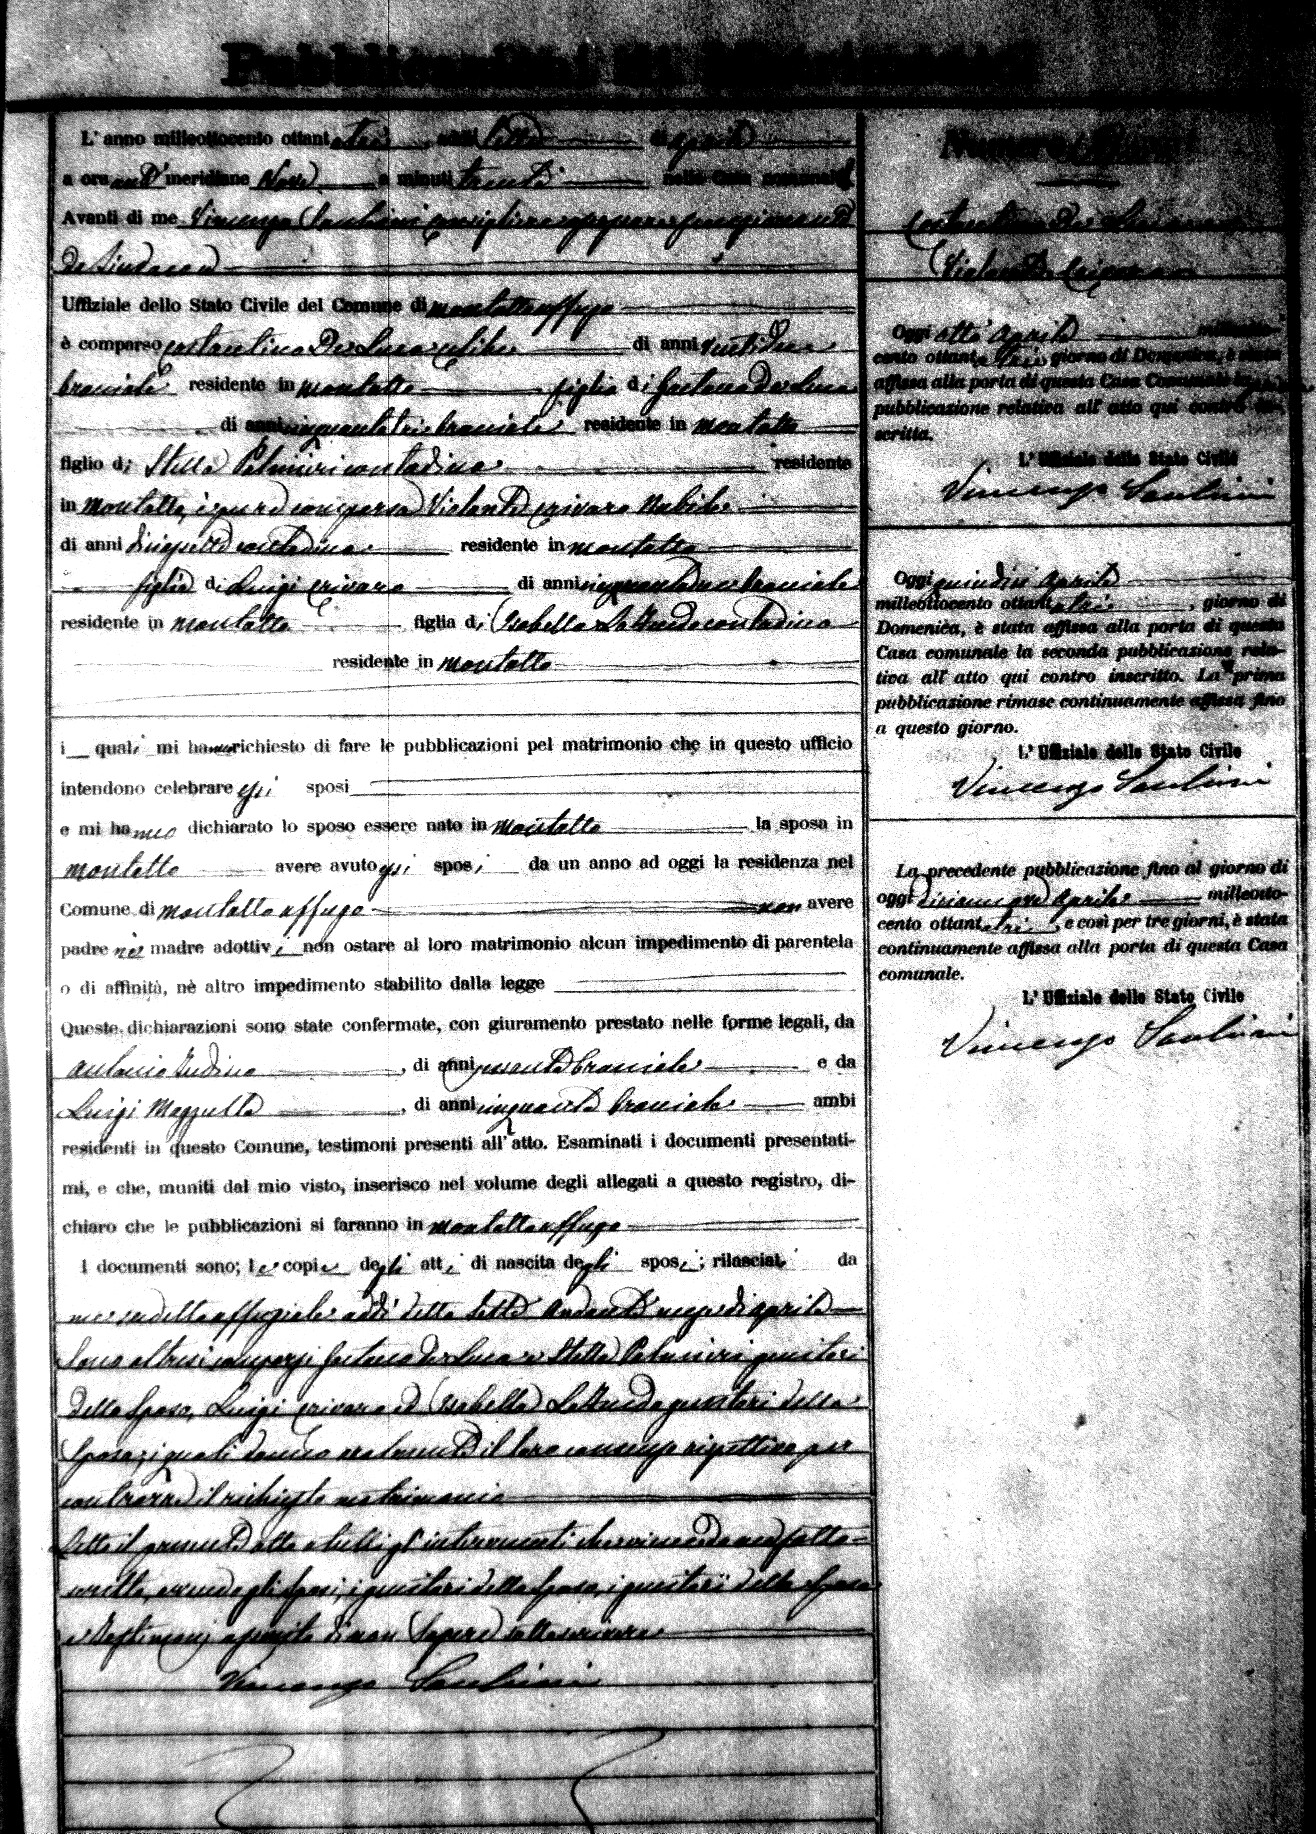 Pubblicazioni di Matrimonio
L'anno milleottocento ottantatre, addì sette di Aprile
a ore anti meridiane nove e minuti trenta nella Casa comunale
Avanti di me Vincenzo
da Sindaco
Uffiziale dello Stato Civile del Comune di Montalto Uffugo
è comparso Costantino De Luca celibe di anni ventidue
braciale residente in Montalto figlio di Gaetano De Luca
di anni cinquantatre braciale residente in Montalto
figlio di Stella Palmieri contadina residente
in Montalto, è pure comparsa Violante Crivaro Nubile
di anni diciassette contadina residente in Montalto
figlia di Luigi Crivaro di anni braciale
residente in Montalto figlia di Isabella contadina
residente in Montalto
i quali mi hanno richiesto di fare le pubblicazioni pel matrimonio che in questo ufficio
intendono celebrare essi sposi
e mi hanno dichiarato lo sposo essere nato in Montalto la sposa in
Montalto avere avuto essi sposi da un anno ad oggi la residenza nel
Comune di Montalto Uffugo non avere
padre nè madre adottivi non ostare al loro matrimonio alcun impedimento di parentela
o di affinità, nè altro impedimento stabilito dalla legge
Queste dichiarazioni sono state confermate, con giuramento prestato nelle forme legali, da
Antonio, di anni quaranta braciale e da
Luigi Mazzulla, di anni cinquanta braciale ambi
residenti in questo Comune, testimoni presenti all'atto. Esaminati i documenti presentati-
mi, e che, muniti dal mio visto, inserisco nel volume degli allegati a questo registro, di-
chiaro che le pubblicazioni si faranno in Montalto Uffugo
I documenti sono; le copie degli atti di nascita degli sposi; rilasciati da
me sudetto uffiziale addì detto sette andante mese di Aprile
Sono altresì comparsi Gaetano De Luca e Stella Palmieri genitori
dello sposo, Luigi Crivaro ed Isabella genitori della
sposa, i quali danno il loro consenso rispettivo per
contrarre il richiesto matrimonio
Letto il presente atto a tutti gl'intervenuti
gli sposi, i genitori dello sposo, i genitori della sposa
e testimonj di non sapere sottoscrivere
Vincenzo
Numero
Costantino De Luca
Violante Crivaro
Oggi otto Aprile milleotto-
cento ottantatre giorno di Domenica, è stata
affissa alla porta di questa Casa Comunale la
pubblicazione relativa all'atto qui contro in-
scritto.
L'Uffiziale dello Stato Civile
Vincenzo
Oggi quindici Aprile
milleottocento ottantatre, giorno di
Domenica, è stata affissa alla porta di questa
Casa comunale la seconda pubblicazione rela-
tiva all'atto qui contro inscritto. La prima
pubblicazione rimase continuamente affissa fino
a questo giorno.
L'Uffiziale dello Stato Civile
Vincenzo
La precedente pubblicazione fino al giorno di
oggi diciannove Aprile milleotto-
cento ottantatre, e così per tre giorni, è stata
continuamente affissa alla porta di questa Casa
comunale.
L'Uffiziale dello Stato Civile
Vincenzo